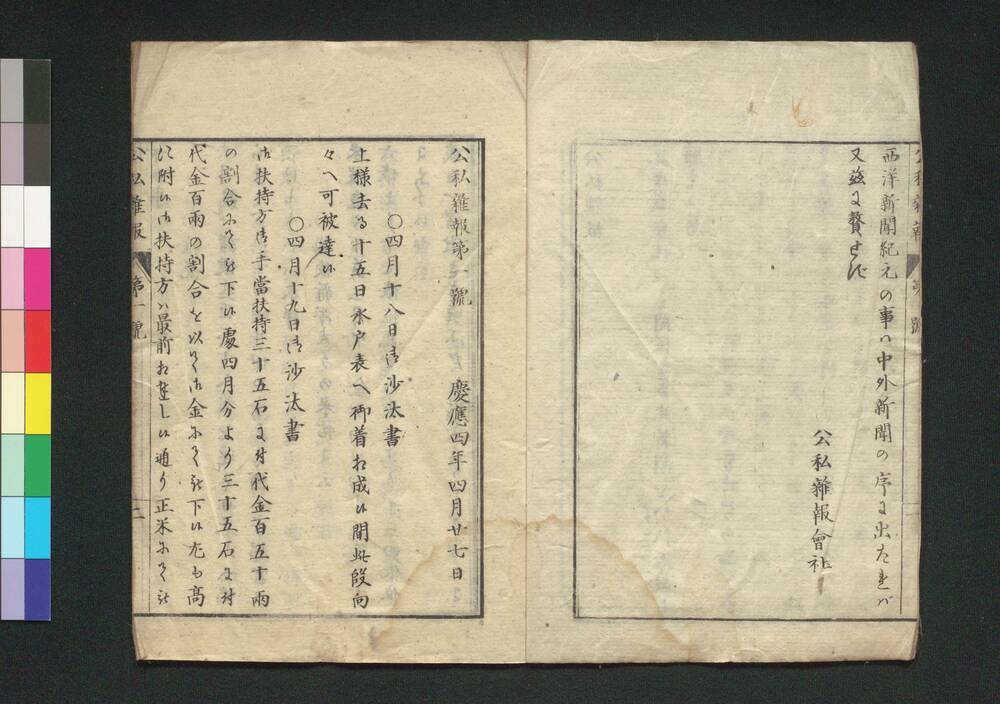 西洋新聞紀元の事ハ中外新聞の序に出たれバ
又茲に贅せず
公私雜報會社
公私雜報第一號　慶應四年四月廿七日
〇四月十八日御沙汰書
上様去る十五日水戸表へ御着相成候間此段向
々へ可被達候
〇四月十九日御沙汰書
御扶持方御手當扶持三十五石に付代金百五十兩
の割合にて被下候處四月分より三十五石に付
代金百兩の割合を以て御金にて被下候尤も高
に附候御扶持方ハ最前相達し候通り正米にて被
公私雜報　第一號　二